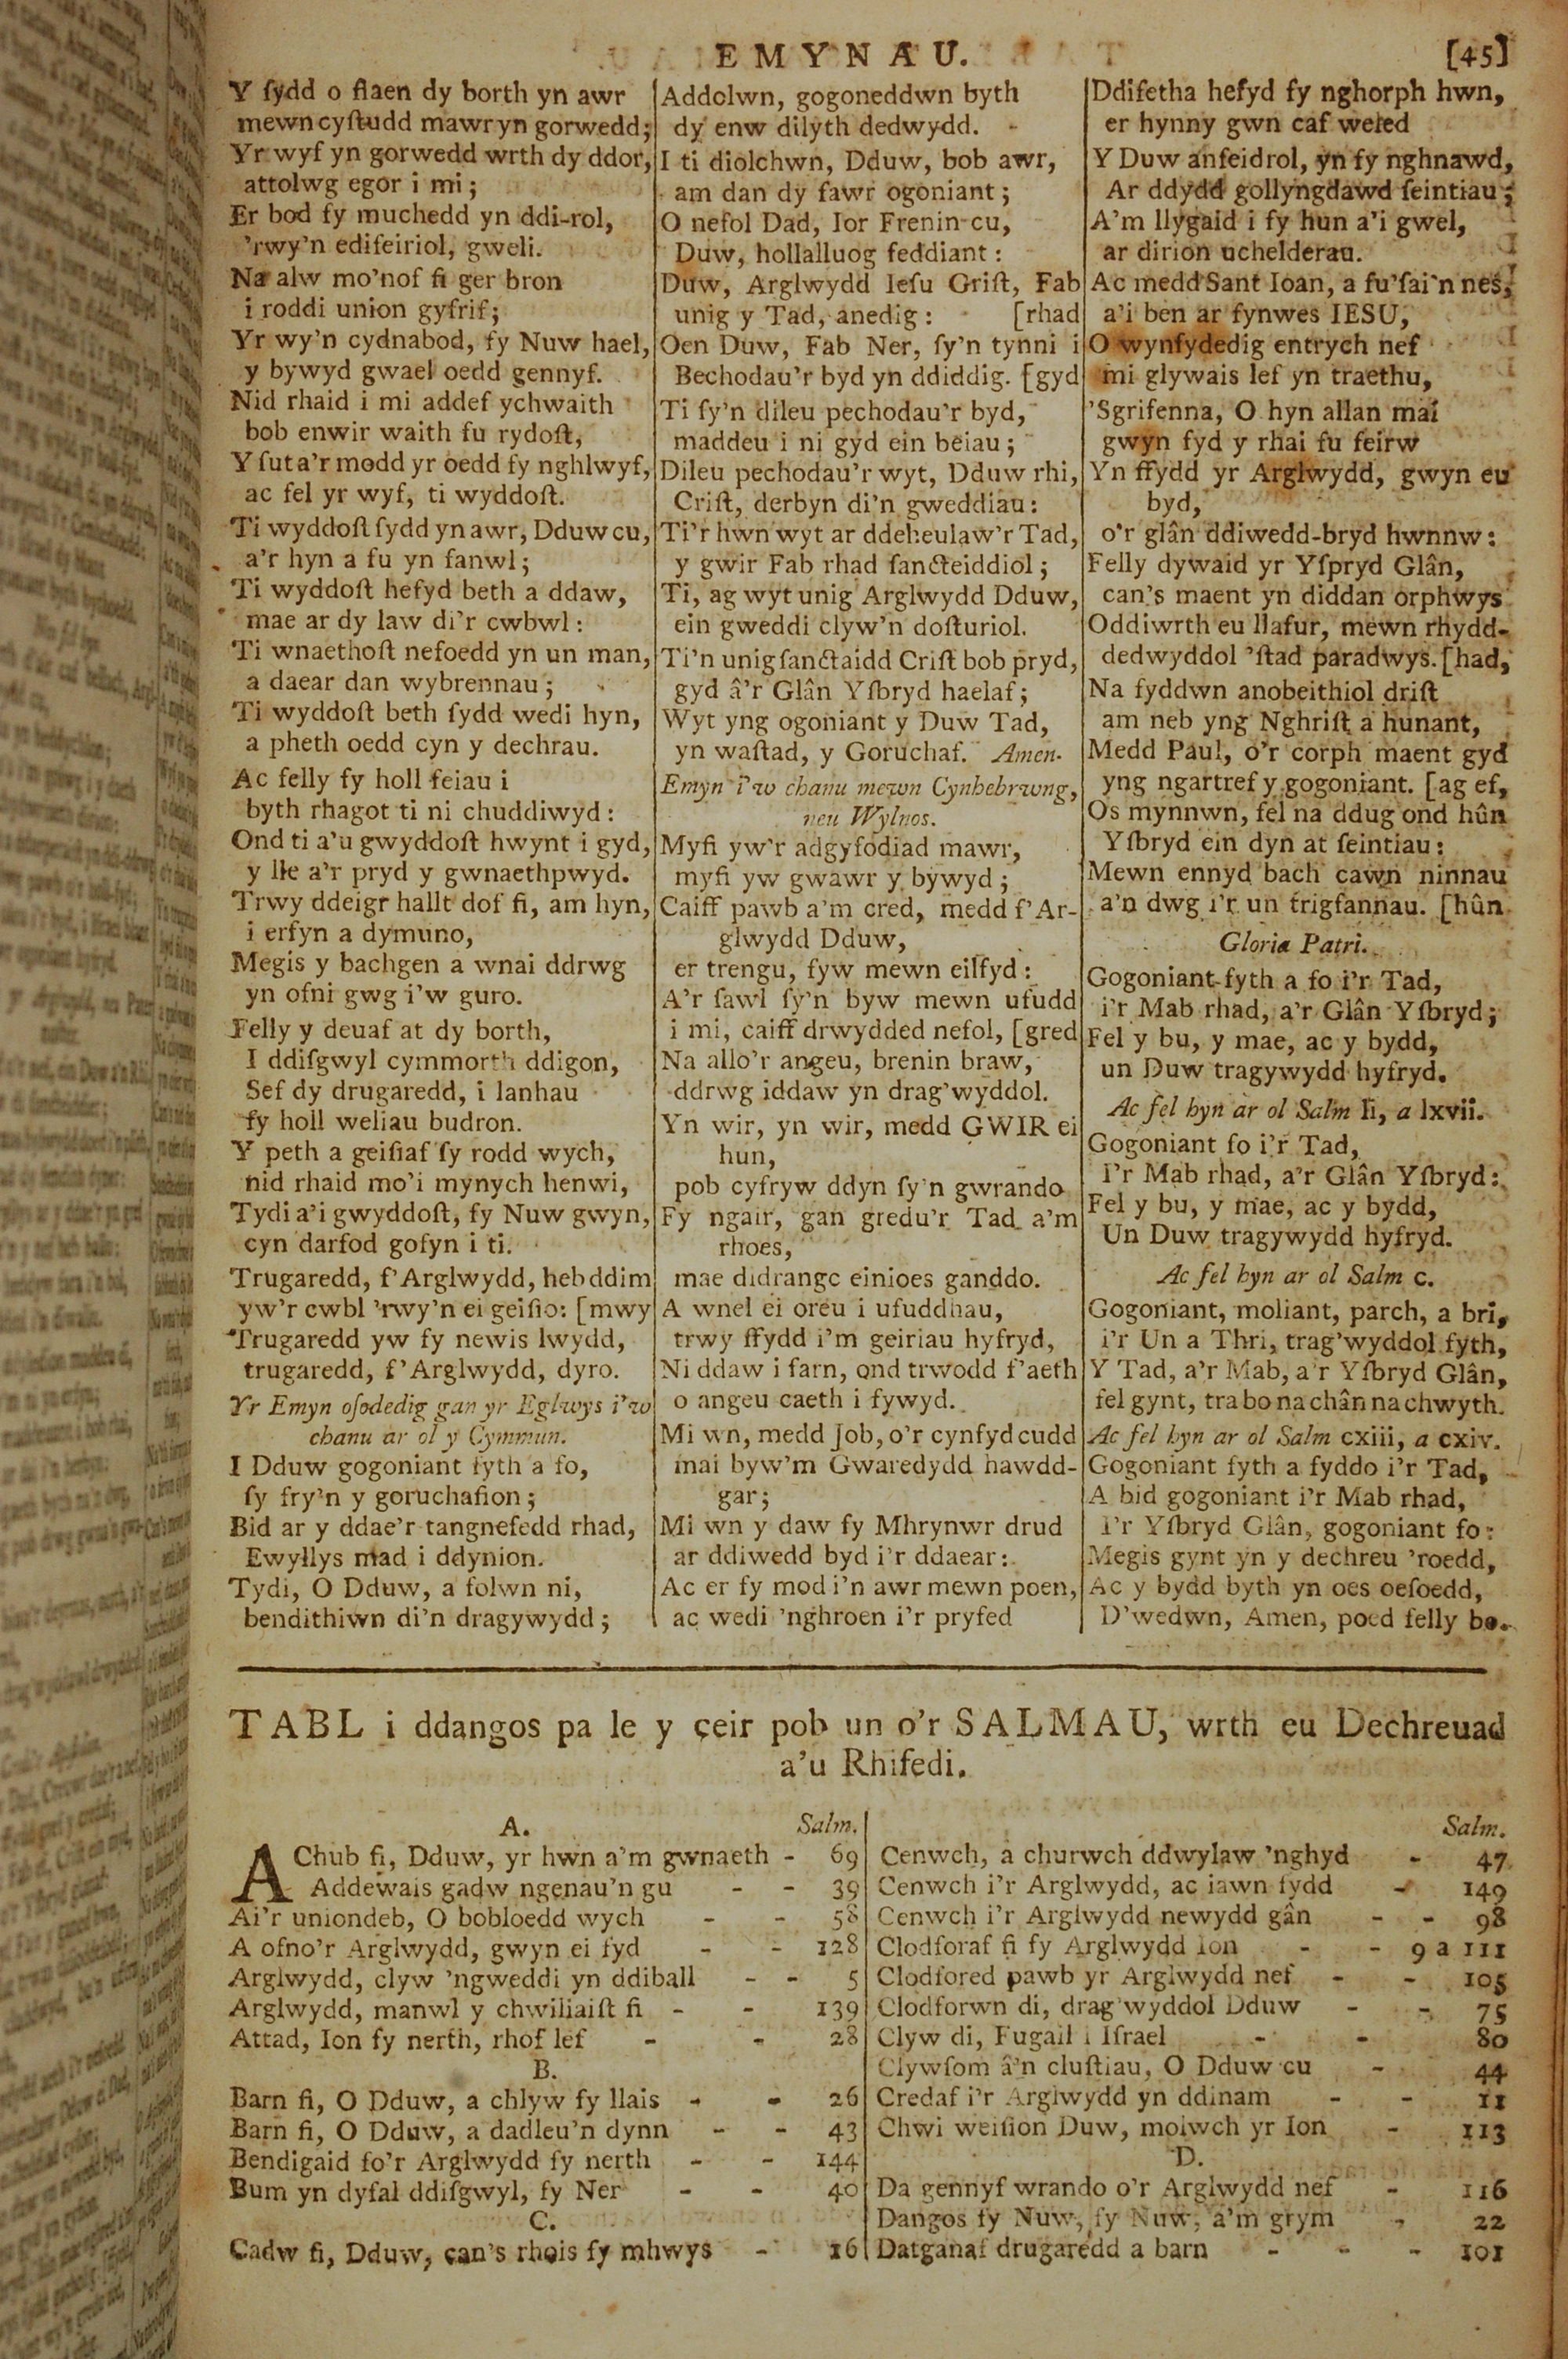 EMYNAU.
[45]
Y ſydd o flaen dy borth yn awr
mewn cyſtudd mawr yn gorwedd;
Yr wyf yn gorwedd wrth dy ddor,
attolwg egor i mi;
Er bod fy muchedd yn ddi-rol,
'rwy'n edifeiriol, gweli.
Na alw mo'nof fi ger bron
i roddi union gyfrif;
Yr wy'n cydnabod, fy Nuw hael,
y bywyd gwael oedd gennyf.
Nid rhaid i mi addef ychwaith
bob enwir waith fu rydoſt,
Y ſut a'r modd yr oedd fy nghlwyf,
ac fel yr wyf, ti wyddoſt.
Ti wyddoſt ſydd yn awr, Dduw cu,
a'r hyn a fu yn fanwl;
Ti wyddoſt hefyd beth a ddaw,
mae ar dy law di'r cwbwl:
Ti wnaethoſt nefoedd yn un man,
a daear dan wybrennau;
Ti wyddoſt beth ſydd wedi hyn,
a pheth oedd cyn y dechrau.
Ac felly fy holl feiau i
byth rhagot ti ni chuddiwyd:
Ond ti a'u gwyddoſt hwynt i gyd,
y lle a'r pryd y gwnaethpwyd.
Trwy ddeigr hallt dof fi, am hyn,
i erfyn a dymuno,
Megis y bachgen a wnai ddrwg
yn ofni gwg i'w guro.
Felly y deuaf at dy borth,
I ddiſgwyl cymmorth ddigon,
Sef dy drugaredd, i lanhau
fy holl weliau budron.
Y peth a geiſiaf ſy rodd wych,
nid rhaid mo'i mynych henwi,
Tydi a'i gwyddoſt, fy Nuw gwyn,
cyn darfod gofyn i ti.
Trugaredd, f'Arglwydd, heb ddim
yw'r cwbl 'rwy'n ei geiſio: [mwy
Trugaredd yw fy newis lwydd,
trugaredd, f'Arglwydd, dyro.
Yr Emyn oſodedig gan yr Eglwys i'w
chanu ar ol y Cymmun.
I Dduw gogoniant fyth a fo,
ſy fry'n y goruchafion;
Bid ar y ddae'r tangnefedd rhad,
Ewyllys mad i ddynion.
Tydi, O Dduw, a folwn ni,
bendithiwn di'n dragywydd;
Addolwn, gogoneddwn byth
dy enw dilyth dedwydd.
I ti diolchwn, Dduw, bob awr,
am dan dy fawr ogoniant;
O nefol Dad, Ior Frenin cu,
Duw, hollalluog feddiant:
Duw, Arglwydd Ieſu Griſt, Fab
unig y Tad, anedig: [rhad
Oen Duw, Fab Ner, ſy'n tynni i
Bechodau'r byd yn ddiddig. [gyd
Ti ſy'n dileu pechodau'r byd,
maddeu i ni gyd ein beiau;
Dileu pechodau'r wyt, Dduw rhi,
Criſt, derbyn di'n gweddiau:
Ti'r hwn wyt ar ddeheulaw'r Tad,
y gwir Fab rhad ſancteiddiol;
Ti, ag wyt unig Arglwydd Dduw,
ein gweddi clyw'n doſturiol.
Ti'n unig ſanctaidd Criſt bob pryd,
gyd â'r Glân Yſbryd haelaf;
Wyt yng ogoniant y Duw Tad,
yn waſtad, y Goruchaf. Amen.
Emyn i'w chanu mewn Cynhebrwng,
neu Wylnos.
Myfi yw'r adgyfodiad mawr,
myfi yw gwawr y bywyd;
Caiff pawb a'm cred, medd f'Ar-
glwydd Dduw,
er trengu, fyw mewn eilfyd:
A'r ſawl ſy'n byw mewn ufudd
i mi, caiff drwydded nefol, [gred
Na allo'r angeu, brenin braw,
ddrwg iddaw yn drag'wyddol.
Yn wir, yn wir, medd GWIR ei
hun,
pob cyfryw ddyn ſy'n gwrando
Fy ngair, gan gredu'r Tad a'm
rhoes,
mae didrangc einioes ganddo.
A wnel ei oreu i ufuddhau,
trwy ffydd i'm geiriau hyfryd,
Ni ddaw i farn, ond trwodd f'aeth
o angeu caeth i fywyd.
Mi wn, medd Job, o'r cynfyd cudd
mai byw'm Gwaredydd nawdd-
gar;
Mi wn y daw fy Mhrynwr drud
ar ddiwedd byd i'r ddaear:
Ac er fy mod i'n awr mewn poen,
ac wedi 'nghroen i'r pryfed
Ddifetha hefyd fy nghorph hwn,
er hynny gwn caf weled
Y Duw anfeidrol, yn fy nghnawd,
Ar ddydd gollyngdawd ſeintiau;
A'm llygaid i fy hun a'i gwel,
ar dirion uchelderau.
Ac medd Sant Ioan, a fu'ſai'n nes,
a'i ben ar fynwes IESU,
O wynfydedig entrych nef
mi glywais lef yn traethu,
'Sgrifenna, O hyn allan mai
gwyn fyd y rhai fu feirw
Yn ffydd yr Arglwydd, gwyn eu
byd,
o'r glân ddiwedd-bryd hwnnw:
Felly dywaid yr Yſpryd Glân,
can's maent yn diddan orphwys
Oddiwrth eu llafur, mewn rhydd-
dedwyddol 'ſtad paradwys. [had,
Na fyddwn anobeithiol driſt
am neb yng Nghriſt a hunant,
Medd Paul, o'r corph maent gyd
yng ngartref y gogoniant. [ag ef,
Os mynnwn, fel na ddug ond hûn
Yſbryd ein dyn at ſeintiau:
Mewn ennyd bach cawn ninnau
a'n dwg i'r un trigfannau. [hûn
Gloria Patri.
Gogoniant fyth a fo i'r Tad,
i'r Mab rhad, a'r Glân Yſbryd;
Fel y bu, y mae, ac y bydd,
un Duw tragywydd hyfryd.
Ac fel hyn ar ol Salm li, a lxvii.
Gogoniant fo i'r Tad,
I'r Mab rhad, a'r Glân Yſbryd:
Fel y bu, y mae, ac y bydd,
Un Duw tragywydd hyfryd.
Ac fel hyn ar ol Salm c.
Gogoniant, moliant, parch, a bri,
i'r Un a Thri, trag'wyddol fyth,
Y Tad, a'r Mab, a'r Yſbryd Glân,
fel gynt, tra bo na chân na chwyth.
Ac fel hyn ar ol Salm cxiii, a cxiv.
Gogoniant fyth a fyddo i'r Tad,
A bid gogoniant i'r Mab rhad,
I'r Yſbryd Glân, gogoniant fo:
Megis gynt yn y dechreu 'roedd,
Ac y bydd byth yn oes oeſoedd,
D'wedwn, Amen, poed felly bo.
TABL i ddangos pa le y ceir pob un o'r SALMAU, wrth eu Dechreuad
a'u Rhifedi.
A. Salm.
AChub fi, Dduw, yr hwn a'm gwnaeth - 69
Addewais gadw ngenau'n gu - - 39
Ai'r uniondeb, O bobloedd wych - - 58
A ofno'r Arglwydd, gwyn ei fyd - - 128
Arglwydd, clyw 'ngweddi yn ddiball - - 5
Arglwydd, manwl y chwiliaiſt fi - - 139
Attad, Ion fy nerth, rhof lef - - 28
B.
Barn fi, O Dduw, a chlyw fy llais - - 26
Barn fi, O Dduw, a dadleu'n dynn - - 43
Bendigaid fo'r Arglwydd fy nerth - - 144
Bum yn dyfal ddiſgwyl, fy Ner - - 40
C.
Cadw fi, Dduw, can's rhois fy mhwys - 16
Salm.
Cenwch, a churwch ddwylaw 'nghyd - 47
Cenwch i'r Arglwydd, ac iawn fydd - 149
Cenwch i'r Arglwydd newydd gân - - 98
Clodforaf fi fy Arglwydd Ion - - 9 a 111
Clodfored pawb yr Arglwydd nef - - 105
Clodforwn di, drag'wyddol Dduw - - 75
Clyw di, Fugail i Iſrael - - 80
Clywſom â'n cluſtiau, O Dduw cu - 44
Credaf i'r Arglwydd yn ddinam - - 11
Chwi weiſion Duw, molwch yr Ion - 113
D.
Da gennyf wrando o'r Arglwydd nef - 116
Dangos fy Nuw, fy Nuw, a'm grym - 22
Datganaf drugaredd a barn - - - 101